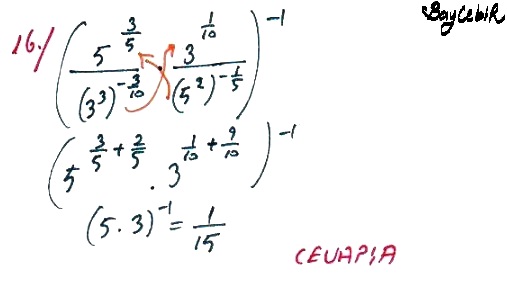 BayCebiR
16./ (5^(3/5) / (3^3)^(-3/10) · 3^(1/10) / (5^2)^(-1/5))^-1
(5^(3/5 + 2/5) . 3^(1/10 + 9/10))^-1
(5.3)^-1 = 1/15
CEVAP:A